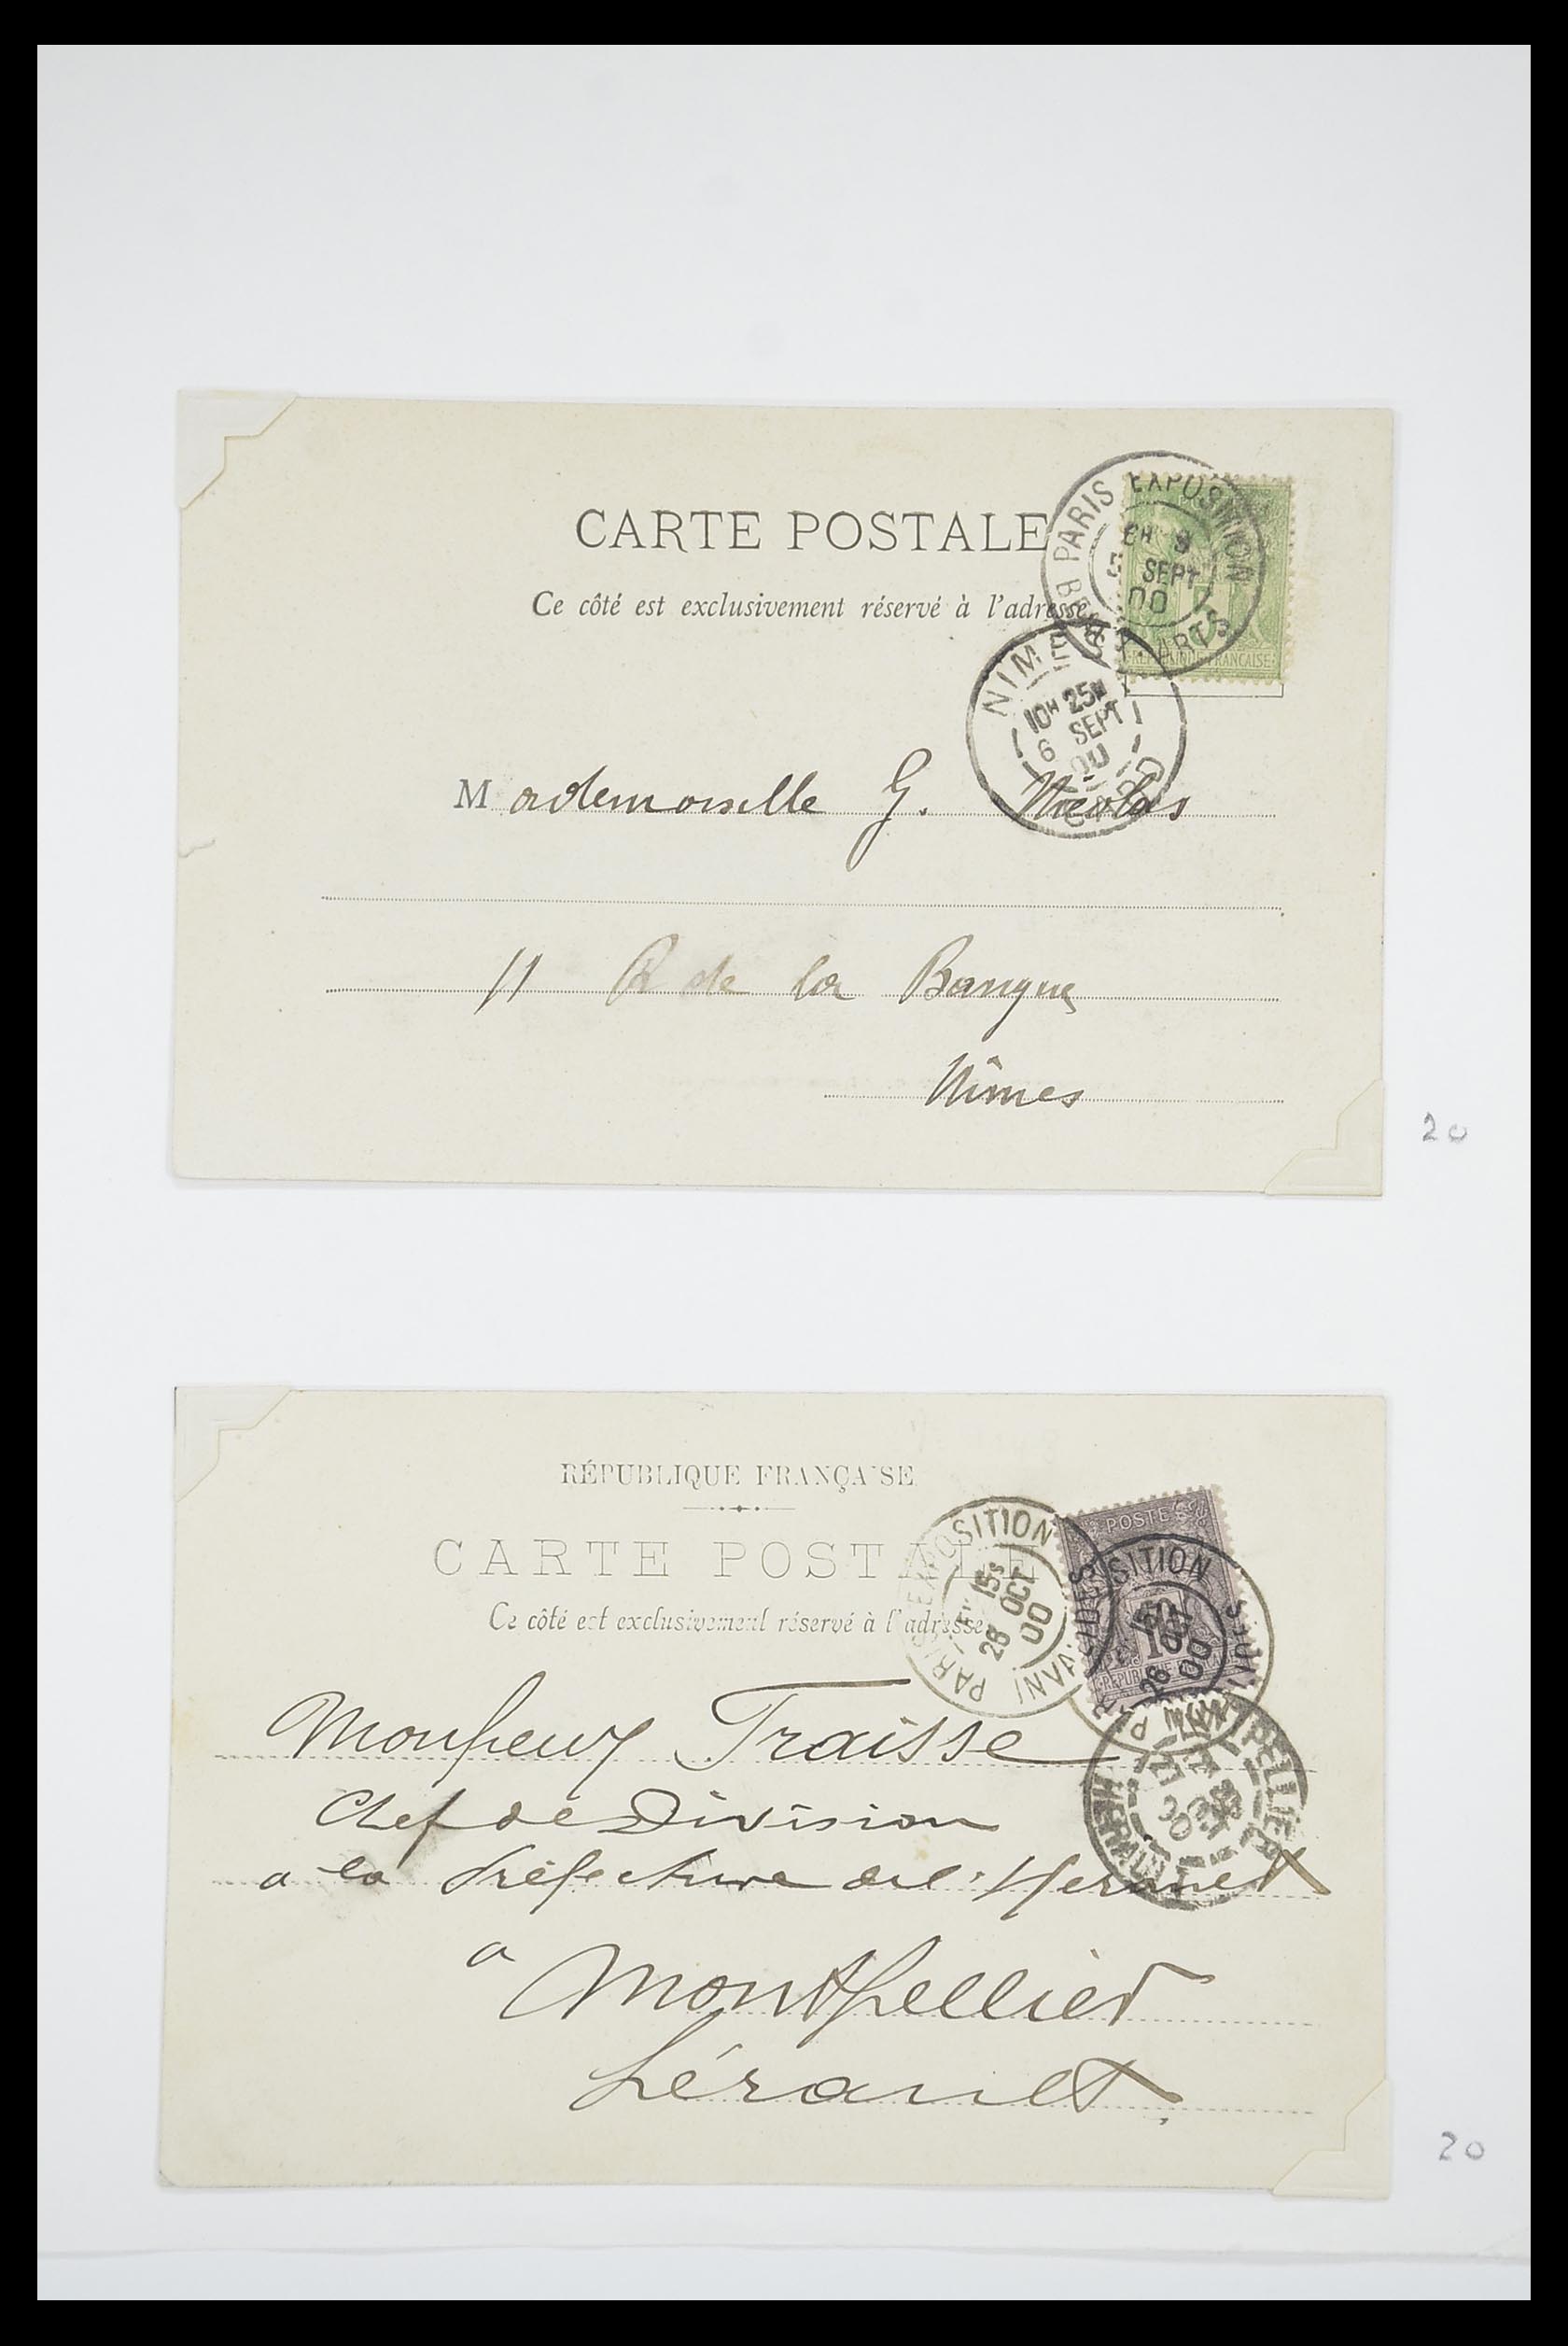 CARTE POSTALE
Ce côté est exclusivement réservé à l'adresse
PARIS EXPOSITION
SEPT
00
BEAUX ARTS
RÉPUBLIQUE FRANÇAISE
NIMES
10H 25M
6 SEPT
00
GARD
Mademoiselle G. Nicolas
11 R de la Banque
Nîmes
20
RÉPUBLIQUE FRANÇAISE
CARTE POSTALE
Ce côté est exclusivement réservé à l'adresse
PARIS EXPOSITION
28 OCT
00
INVALIDES
POSTE
10
Monsieur Traisse
Chef de Division
a la Préfecture de l'Herault
a Montpellier
Hérault
MONTPELLIER
HERAULT
20